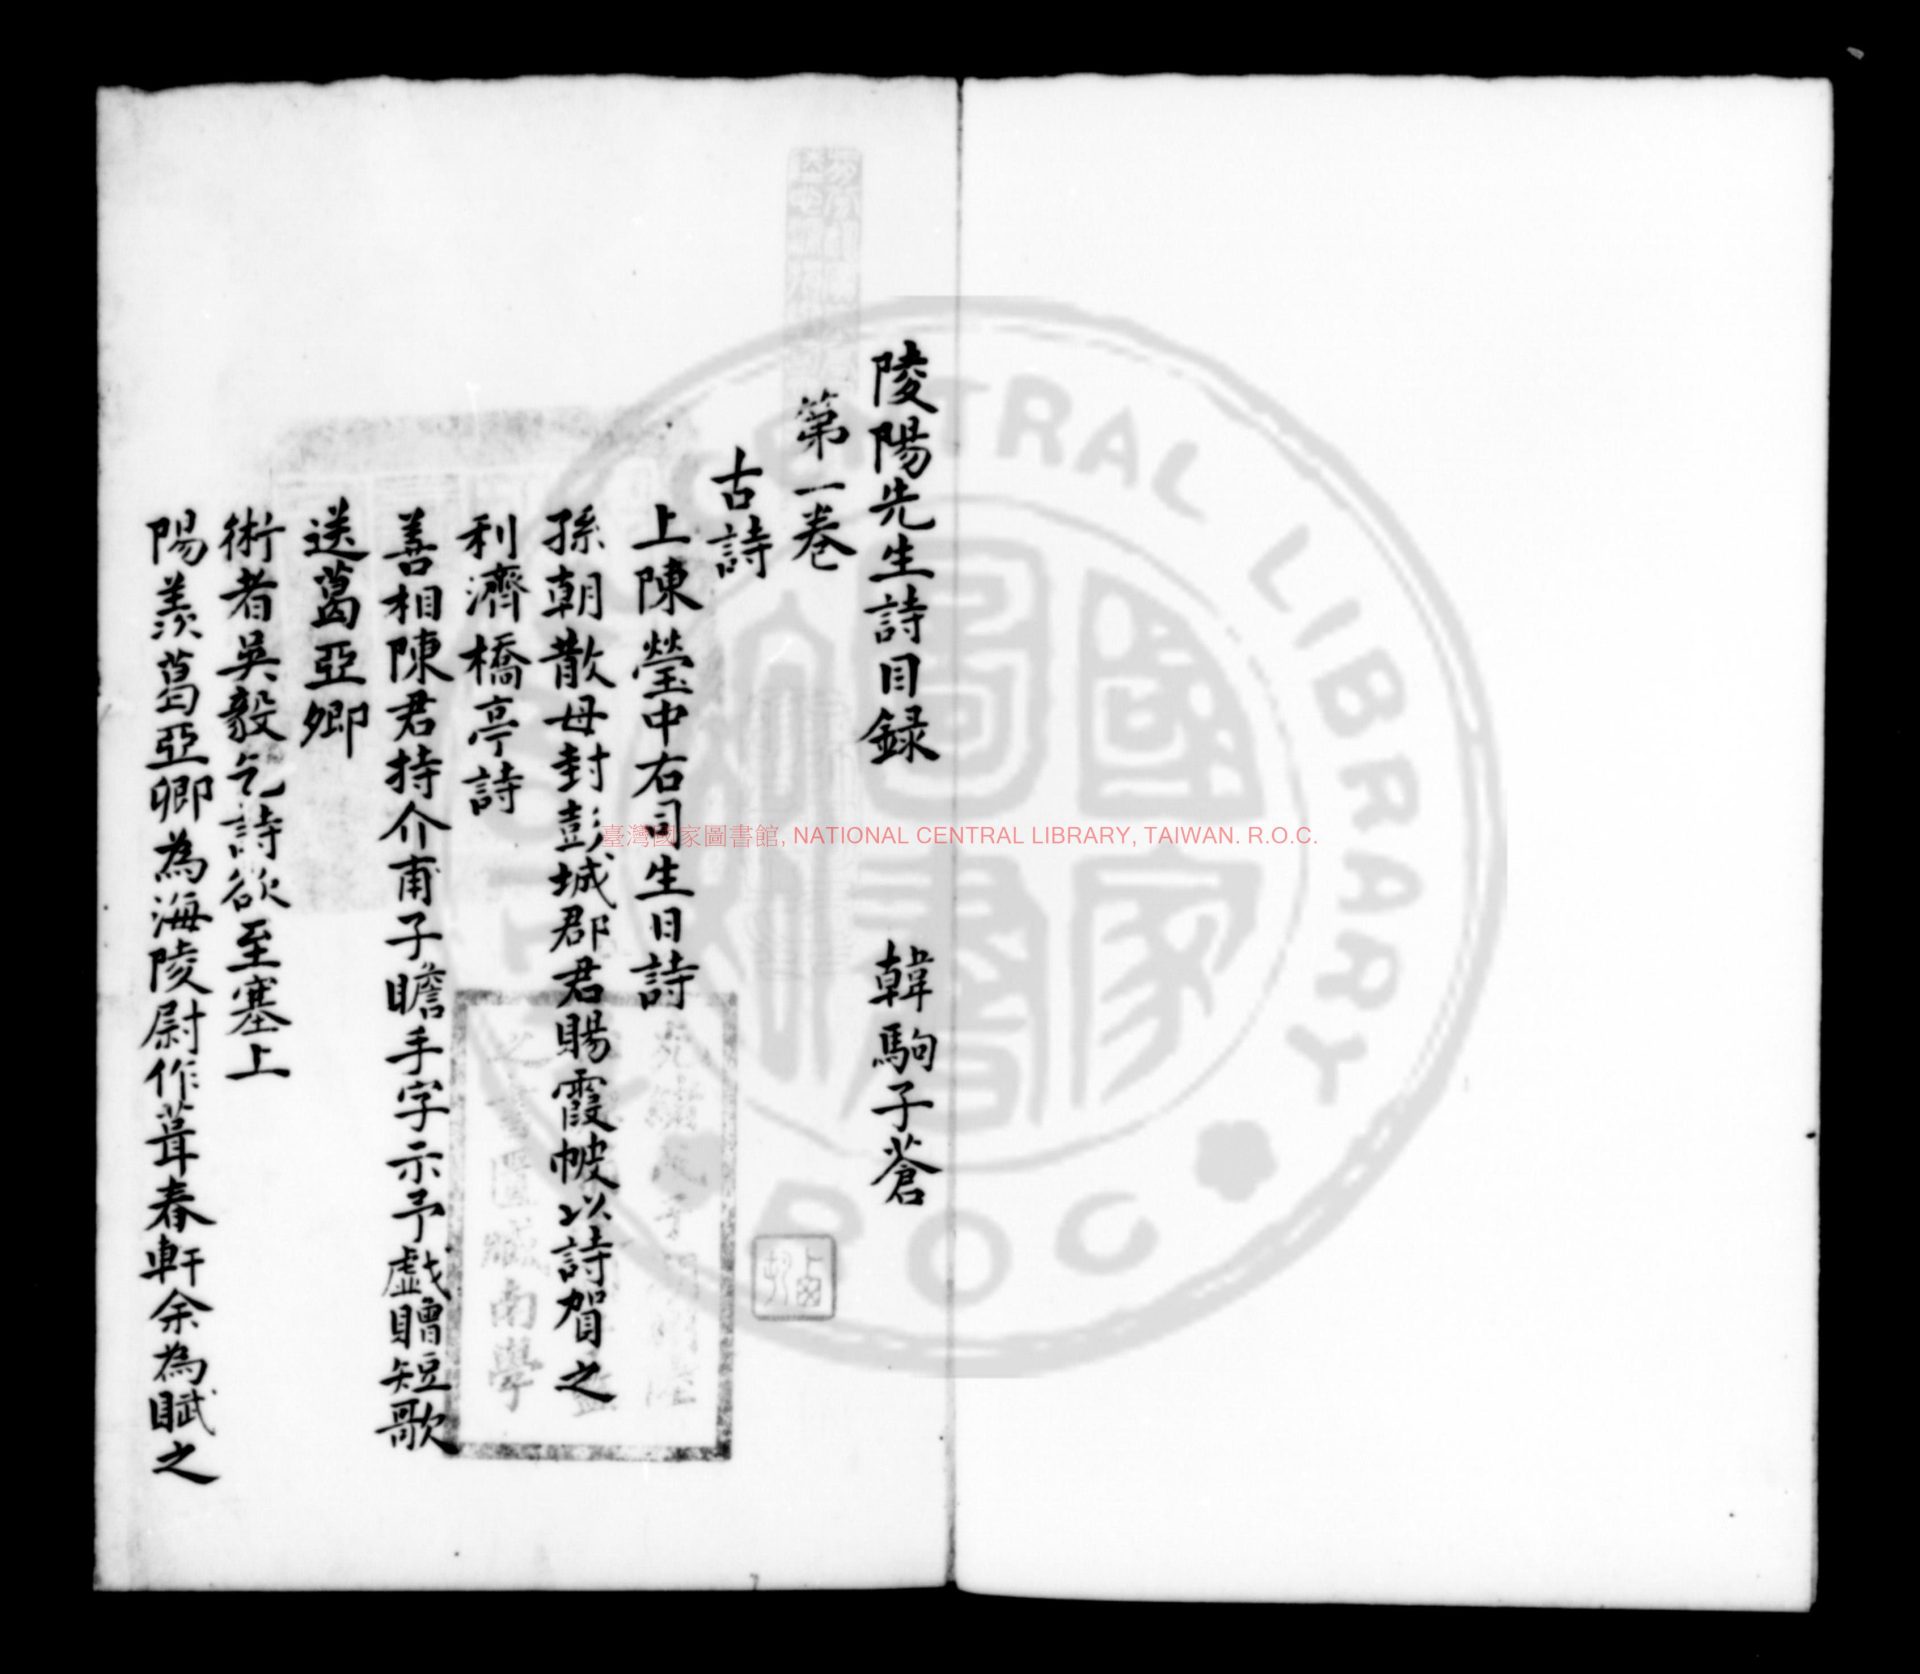 陵陽先生詩目録　韓駒子蒼
第一卷
古詩
上陳瑩中右司生日詩
孫朝散母封彭城郡君賜霞帔以詩賀之
利濟橋亭詩
善相陳君持介甫子瞻手字示予戯贈短歌
送葛亞卿
術者吳毅乞詩欲至塞上
陽羨葛亞卿為海陵尉作葺春軒余為賦之
之書匯臧南學
臺灣國家圖書館, NATIONAL CENTRAL LIBRARY, TAIWAN. R.O.C.
CENTRAL LIBRARY
ROC
國家圖書